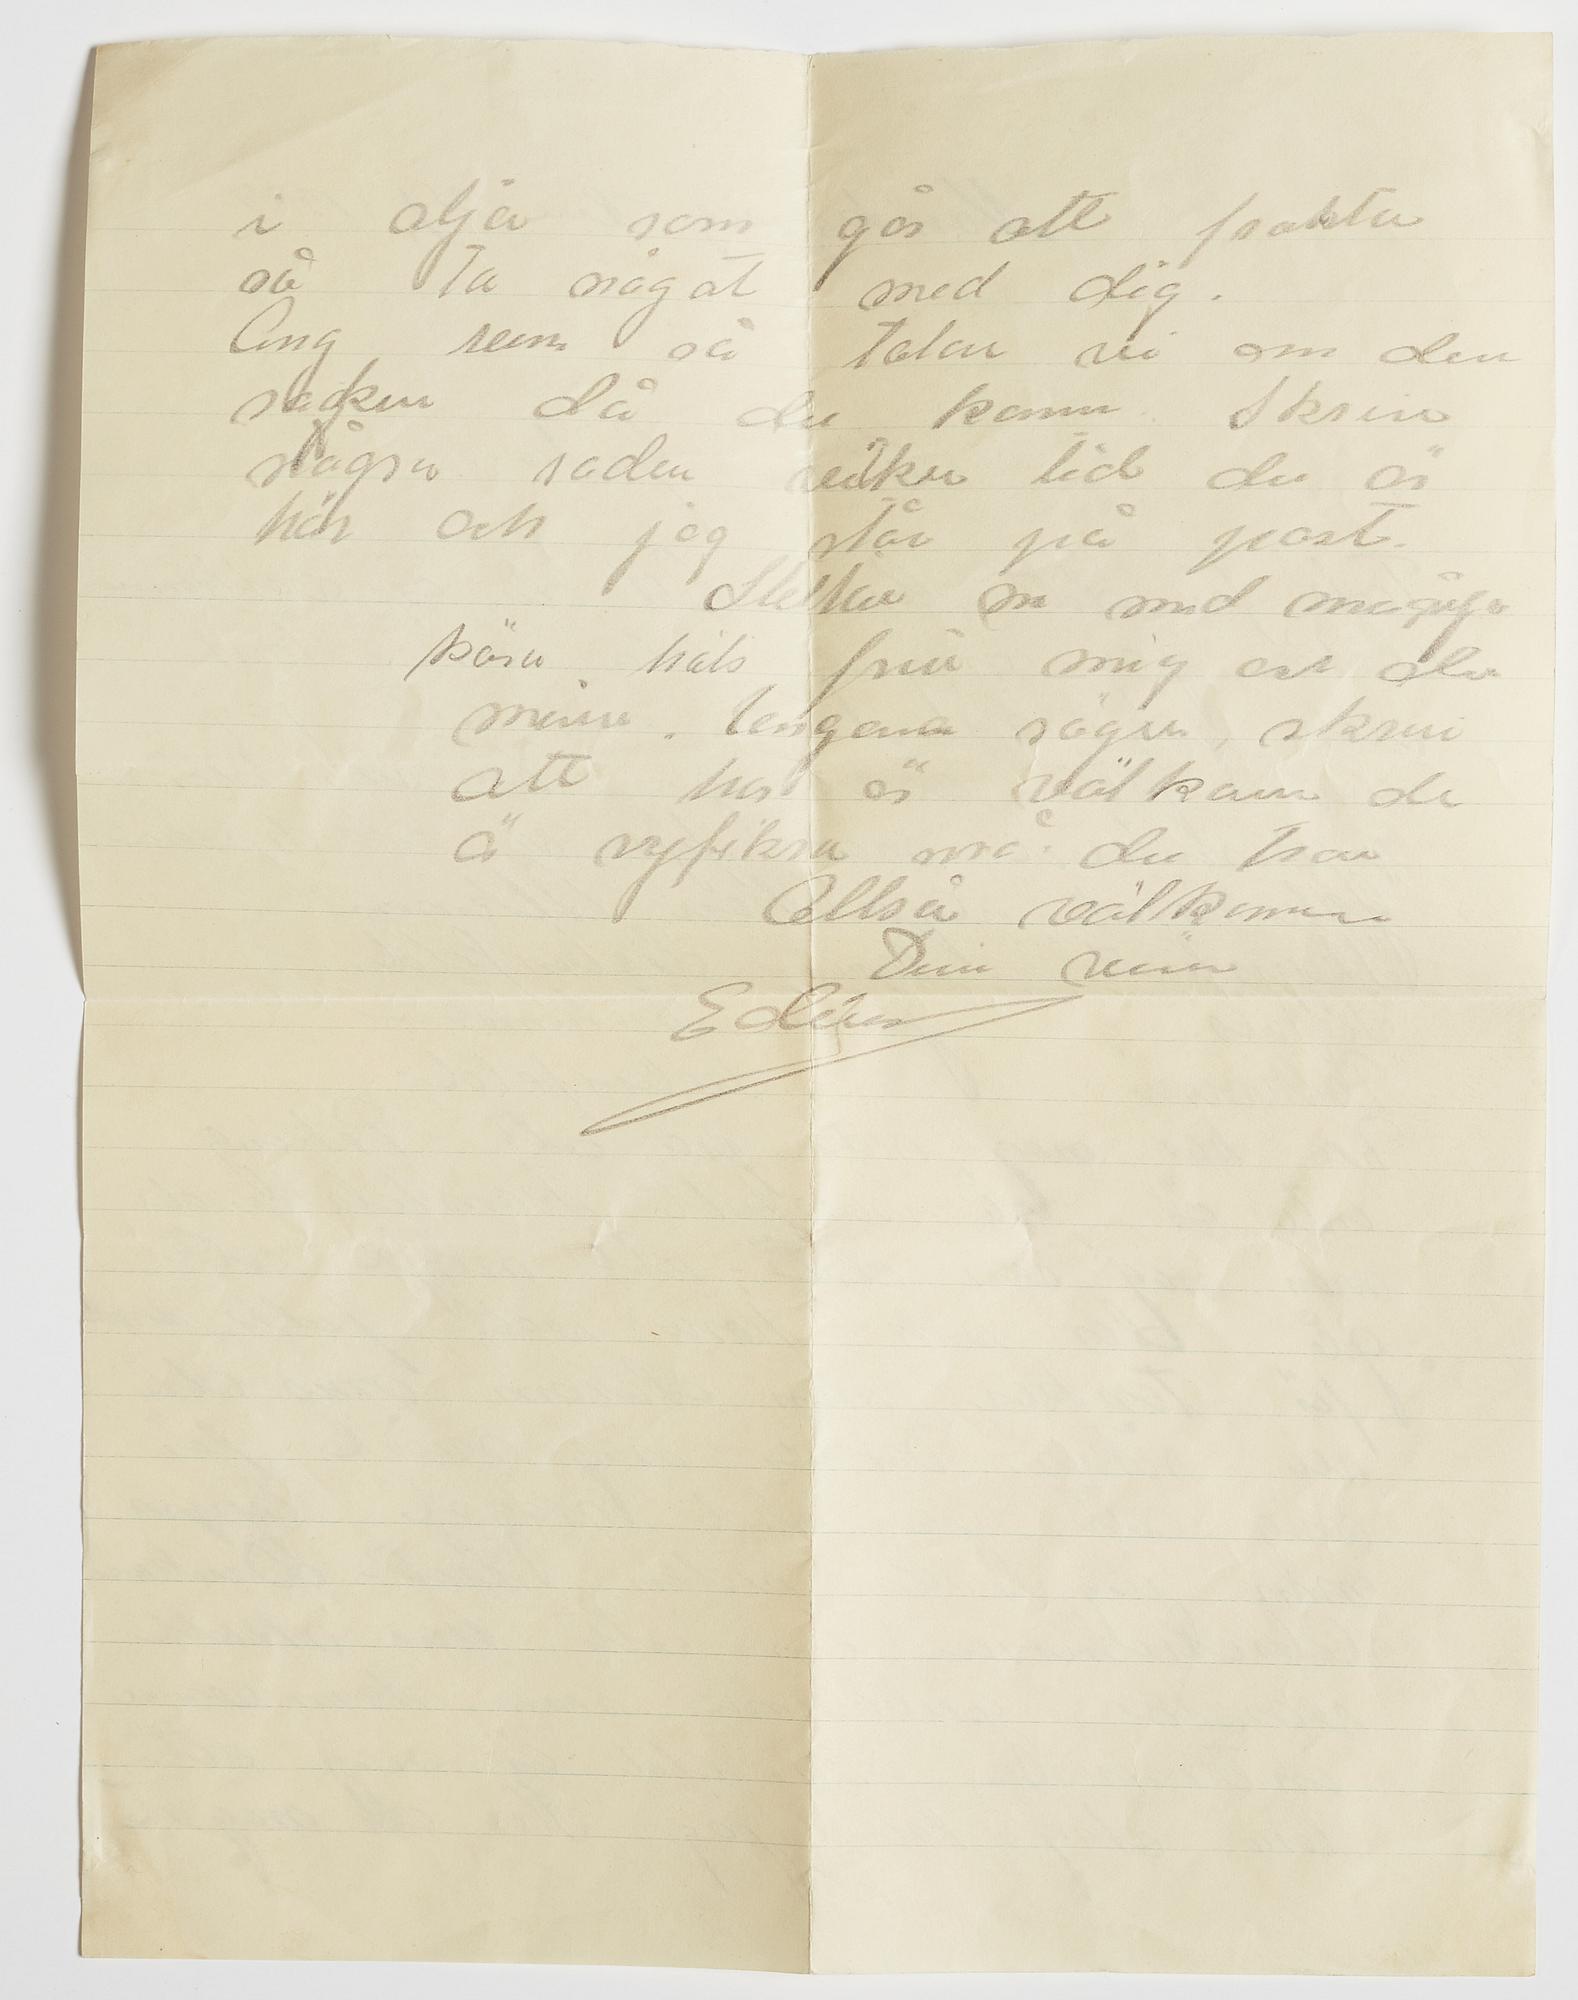 i olja som går att frakta
så ta något med dig.
Ang resan så talar vi om den
saken då du kommer. Skriv
några rader vilken tid du är
här och jag står på post.
Sluttar nu med många
kära häls från mig och de
mina. Ungarna säger, skriv
att han är välkommen de
ä nyfikna må du tro
Alltså välkommen
Din vän